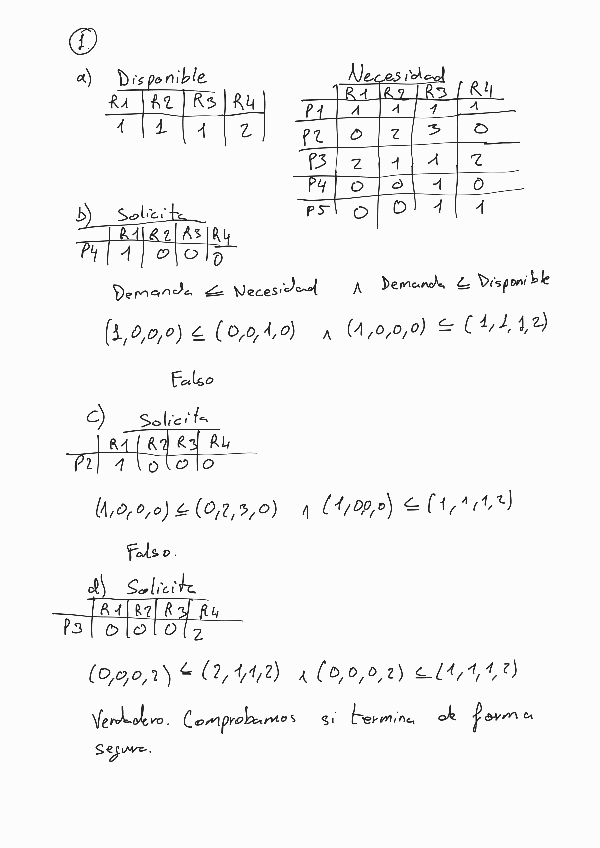 1
a) Disponible
R1 R2 R3 R4
1 1 1 2
Necesidad
R1 R2 R3 R4
P1 1 1 1 1
P2 0 2 3 0
P3 2 1 1 2
P4 0 0 1 0
P5 0 0 1 1
b) Solicita
R1 R2 R3 R4
P4 1 0 0 0
Demanda ≤ Necesidad ∧ Demanda ≤ Disponible
(1,0,0,0) ≤ (0,0,1,0) ∧ (1,0,0,0) ≤ (1,1,1,2)
Falso
c) Solicita
R1 R2 R3 R4
P2 1 0 0 0
(1,0,0,0) ≤ (0,2,3,0) ∧ (1,0,0,0) ≤ (1,1,1,2)
Falso.
d) Solicita
R1 R2 R3 R4
P3 0 0 0 2
(0,0,0,2) ≤ (2,1,1,2) ∧ (0,0,0,2) ≤ (1,1,1,2)
Verdadero. Comprobamos si termina de forma
segura.